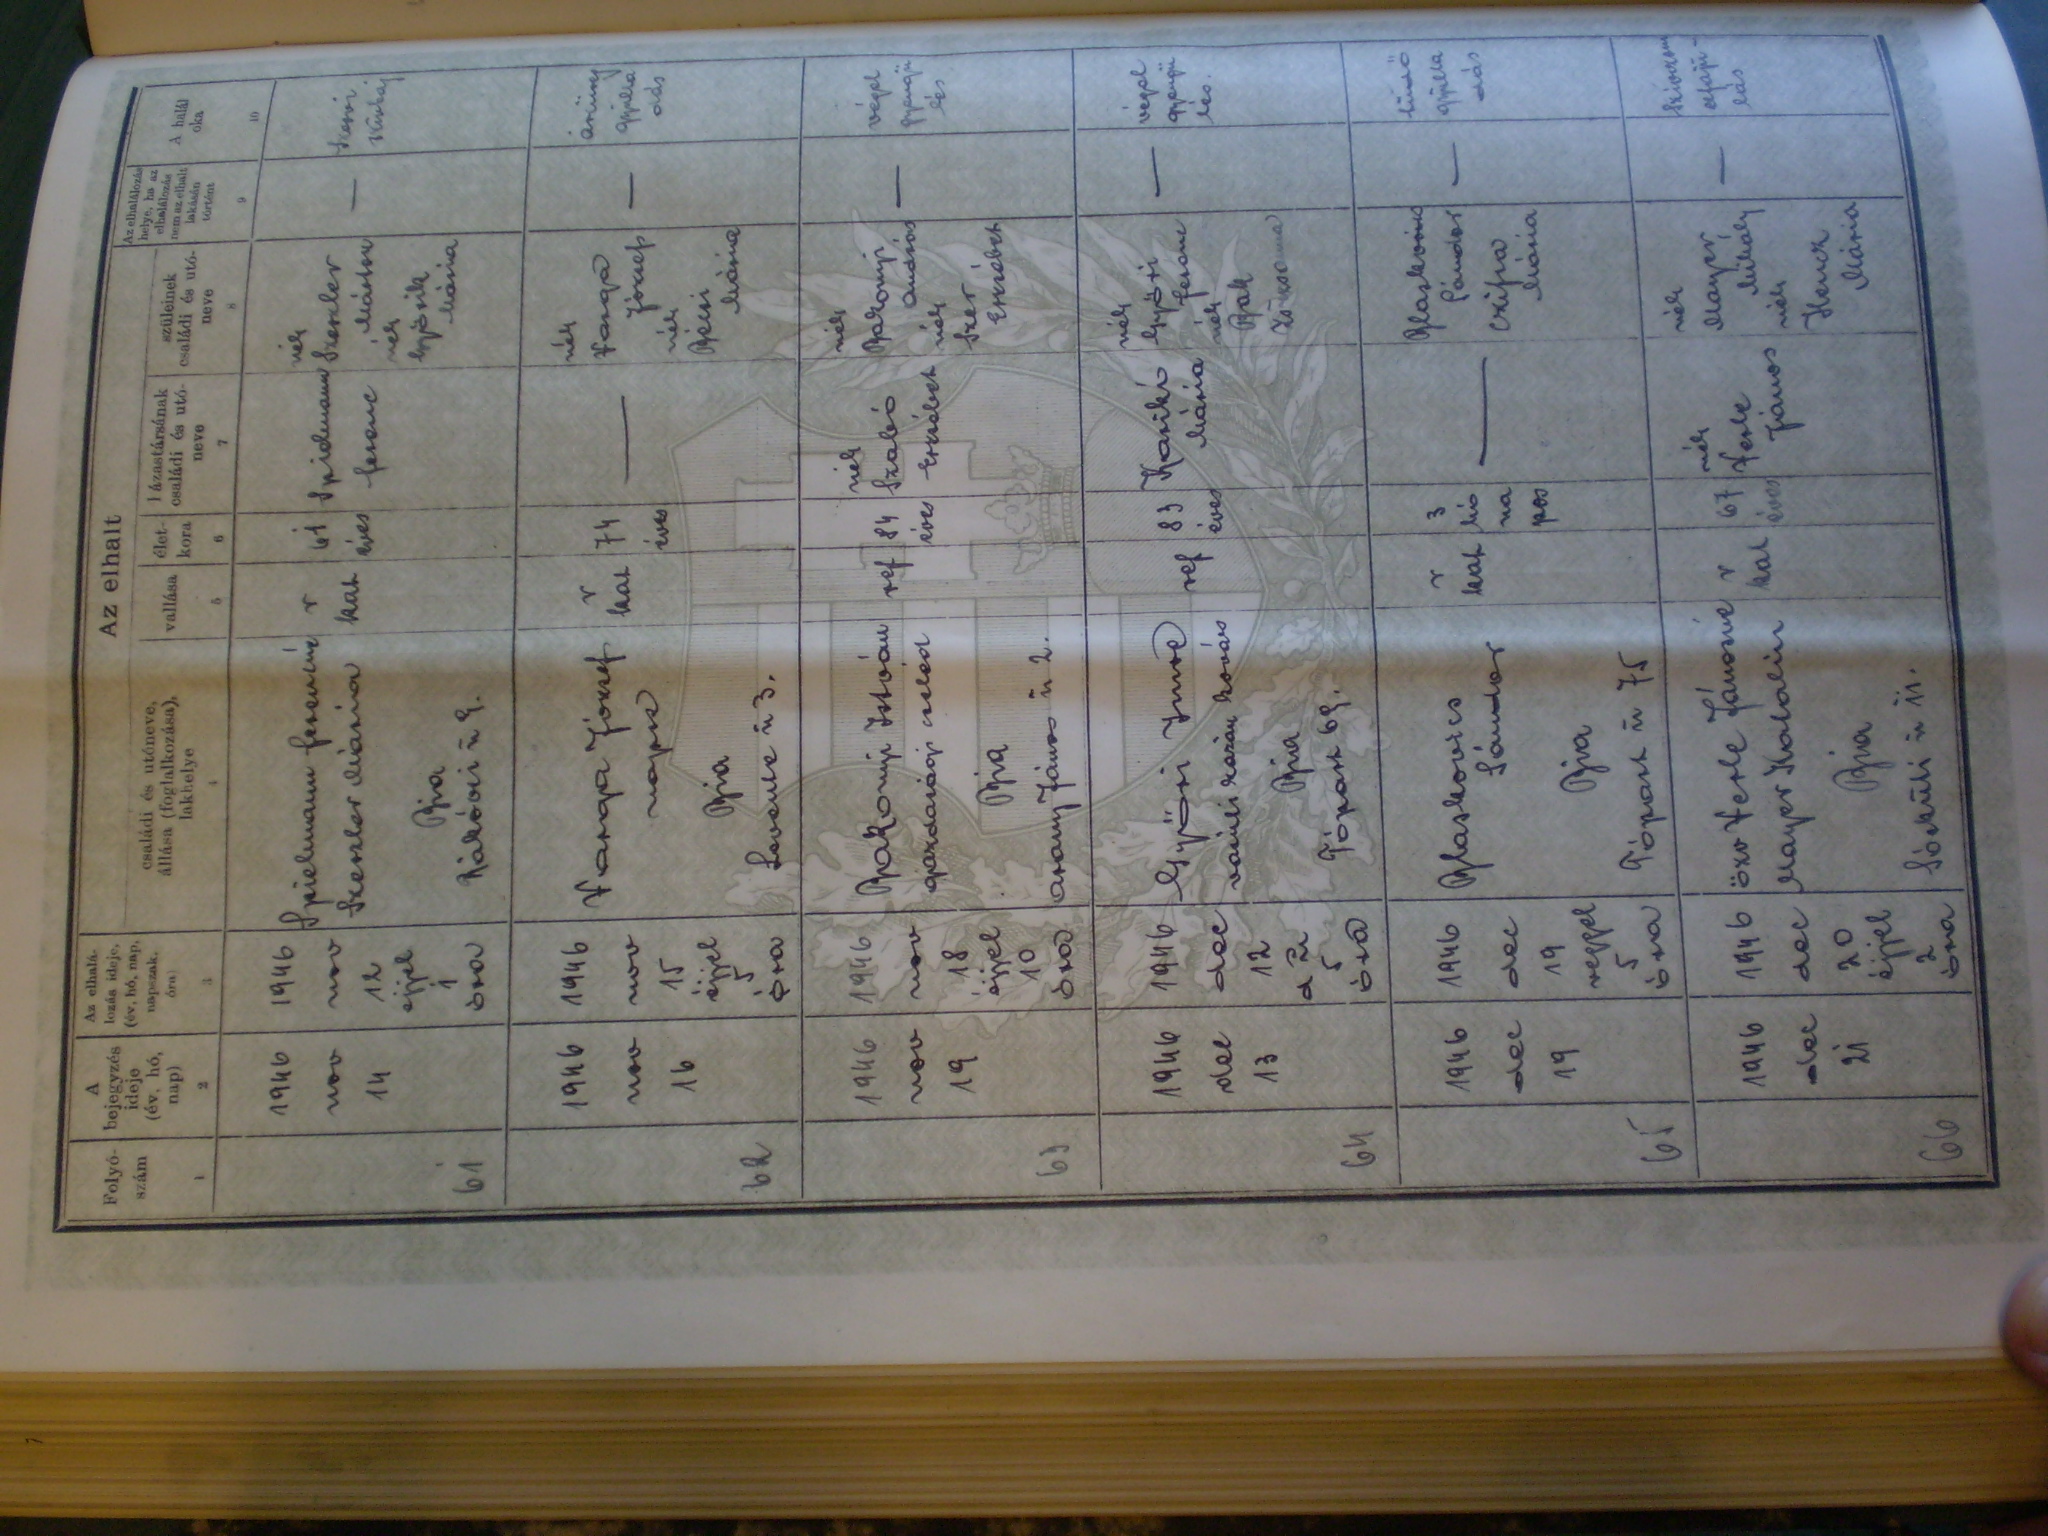 Az elhalt
Folyó-
szám
A
bejegyzés
ideje
(év, hó,
nap)
Az elhalá-
lozás ideje,
(év, hó, nap,
napszak,
óra)
családi és utóneve,
állása (foglalkozása),
lakhelye
vallása
élet-
kora
házastársának
családi és utó-
neve
szüleinek
családi és utó-
neve
Az elhalálozás
helye, ha az
elhalálozás
nem az elhalt
lakásán
történt
A halál
oka
1
2
3
4
5
6
7
8
9
10
61
1946
nov
14
1946
nov
12
éjjel
1
óra
Spielmann Ferencné
Szeszler Mária
Bia
Rákóczi u 9.
r
kat
61
éves
Spielmann
Ferenc
néh
Szeszler
Márton
néh
Győrik
Mária
—
62
1946
nov
16
1946
nov
15
éjjel
5
óra
Varga József
Bia
Levente u 3.
r
kat
74
éves
—
néh
Varga
József
néh
Bécsi
Mária
—
gyulla
dás
63
1946
nov
19
1946
nov
18
éjjel
10
óra
Bakonyi István
gazdasági cseléd
Bia
Arany János u 2.
ref
84
éves
néh
Szabó
Erzsébet
néh
Bakonyi
András
néh
Szer
Erzsébet
—
végel
gyengü
lés
64
1946
dec
13
1946
dec
12
d u
5
óra
Győri Imre
kovács
Bia
Tópart 69.
ref
83
éves
Karikó
Mária
néh
Győri
Ferenc
néh
Bak
Zsuzsanna
—
végel
gyengü
lés.
65
1946
dec
19
1946
dec
19
reggel
5
óra
Blaskovics
Sándor
Bia
Tópart u 75
r
kat
3
hó
na
pos
—
Blaskovics
Sándor
Czifra
Mária
—
tüdő
gyulla
dás
66
1946
dec
21
1946
dec
20
éjjel
2
óra
özv Ferle Jánosné
Mayer Katalin
Bia
Sóskúti u 11.
r
kat
67
éves
néh
Ferle
János
néh
Mayer
Mihály
néh
Henczk
Mária
—
lás